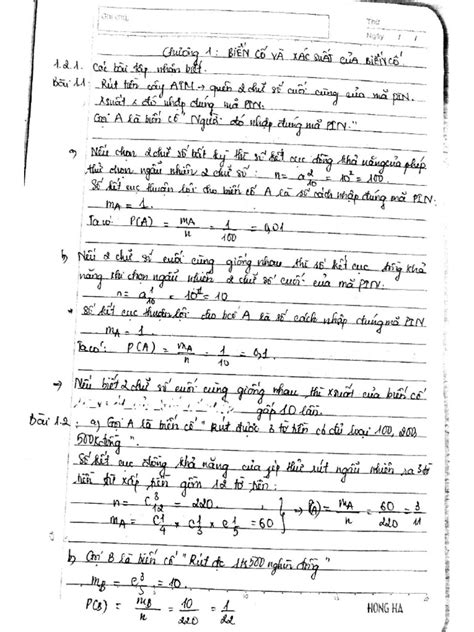 Thứ
Ngày
Chương 1: BIẾN CỐ VÀ XÁC SUẤT CỦA BIẾN CỐ
1.2.1. Các bài tập nhận biết.
Bài 1.1 Rút tiền cây ATM → quên 2 chữ số cuối cùng của mã PIN.
Xsuất đó nhập đúng mã PIN.
Gọi A là biến cố "Người đó nhập đúng mã PIN."
a) Nếu chọn 2 chữ số bất kỳ thì số kết cục đồng khả năng của phép
thử chọn ngẫu nhiên 2 chữ số: n = 10² = 100
Số kết cục thuận lợi cho biến cố A là số cách nhập đúng mã PIN:
mA = 1.
Ta có: P(A) = mA/n = 1/100 = 0,01
b) Nếu 2 chữ số cuối cùng giống nhau thì số kết cục đồng khả
năng khi chọn ngẫu nhiên 2 chữ số cuối của mã PIN:
n = = 10
Số kết cục thuận lợi cho bcố A là số cách nhập đúng mã PIN
mA = 1.
Ta có: P(A) = mA/n = 1/10 = 0,1.
→ Nếu biết 2 chữ số cuối cùng giống nhau thì xsuất của biến cố
gấp 10 lần.
Bài 1.2: a) Gọi A là biến cố "Rút được 3 tờ tiền có đủ loại 100, 200,
500k đồng".
Số kết cục đồng khả năng của phép thử rút ngẫu nhiên ra 3 tờ
tiền từ xấp tiền gồm 12 tờ tiền:
n = C³₁₂ = 220.
mA = C¹₄ × C¹₃ × C¹₅ = 60 } ⇒ P(A) = mA/n = 60/220 = 3/11
b) Gọi B là biến cố "Rút đc 500 nghìn đồng"
mB = C³₅ = 10.
P(B) = mB/n = 10/220 = 1/22
HONG HA